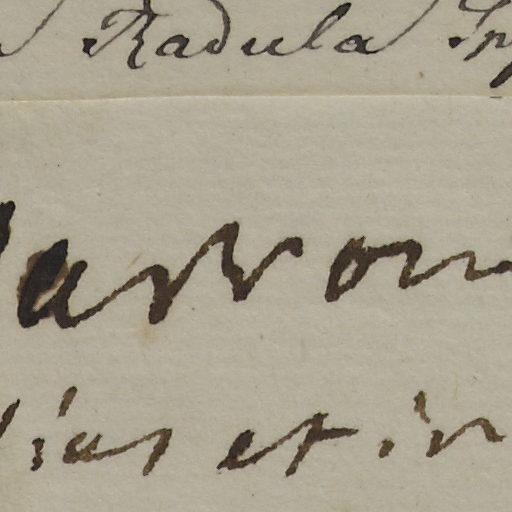 Radula
arron
ias et in